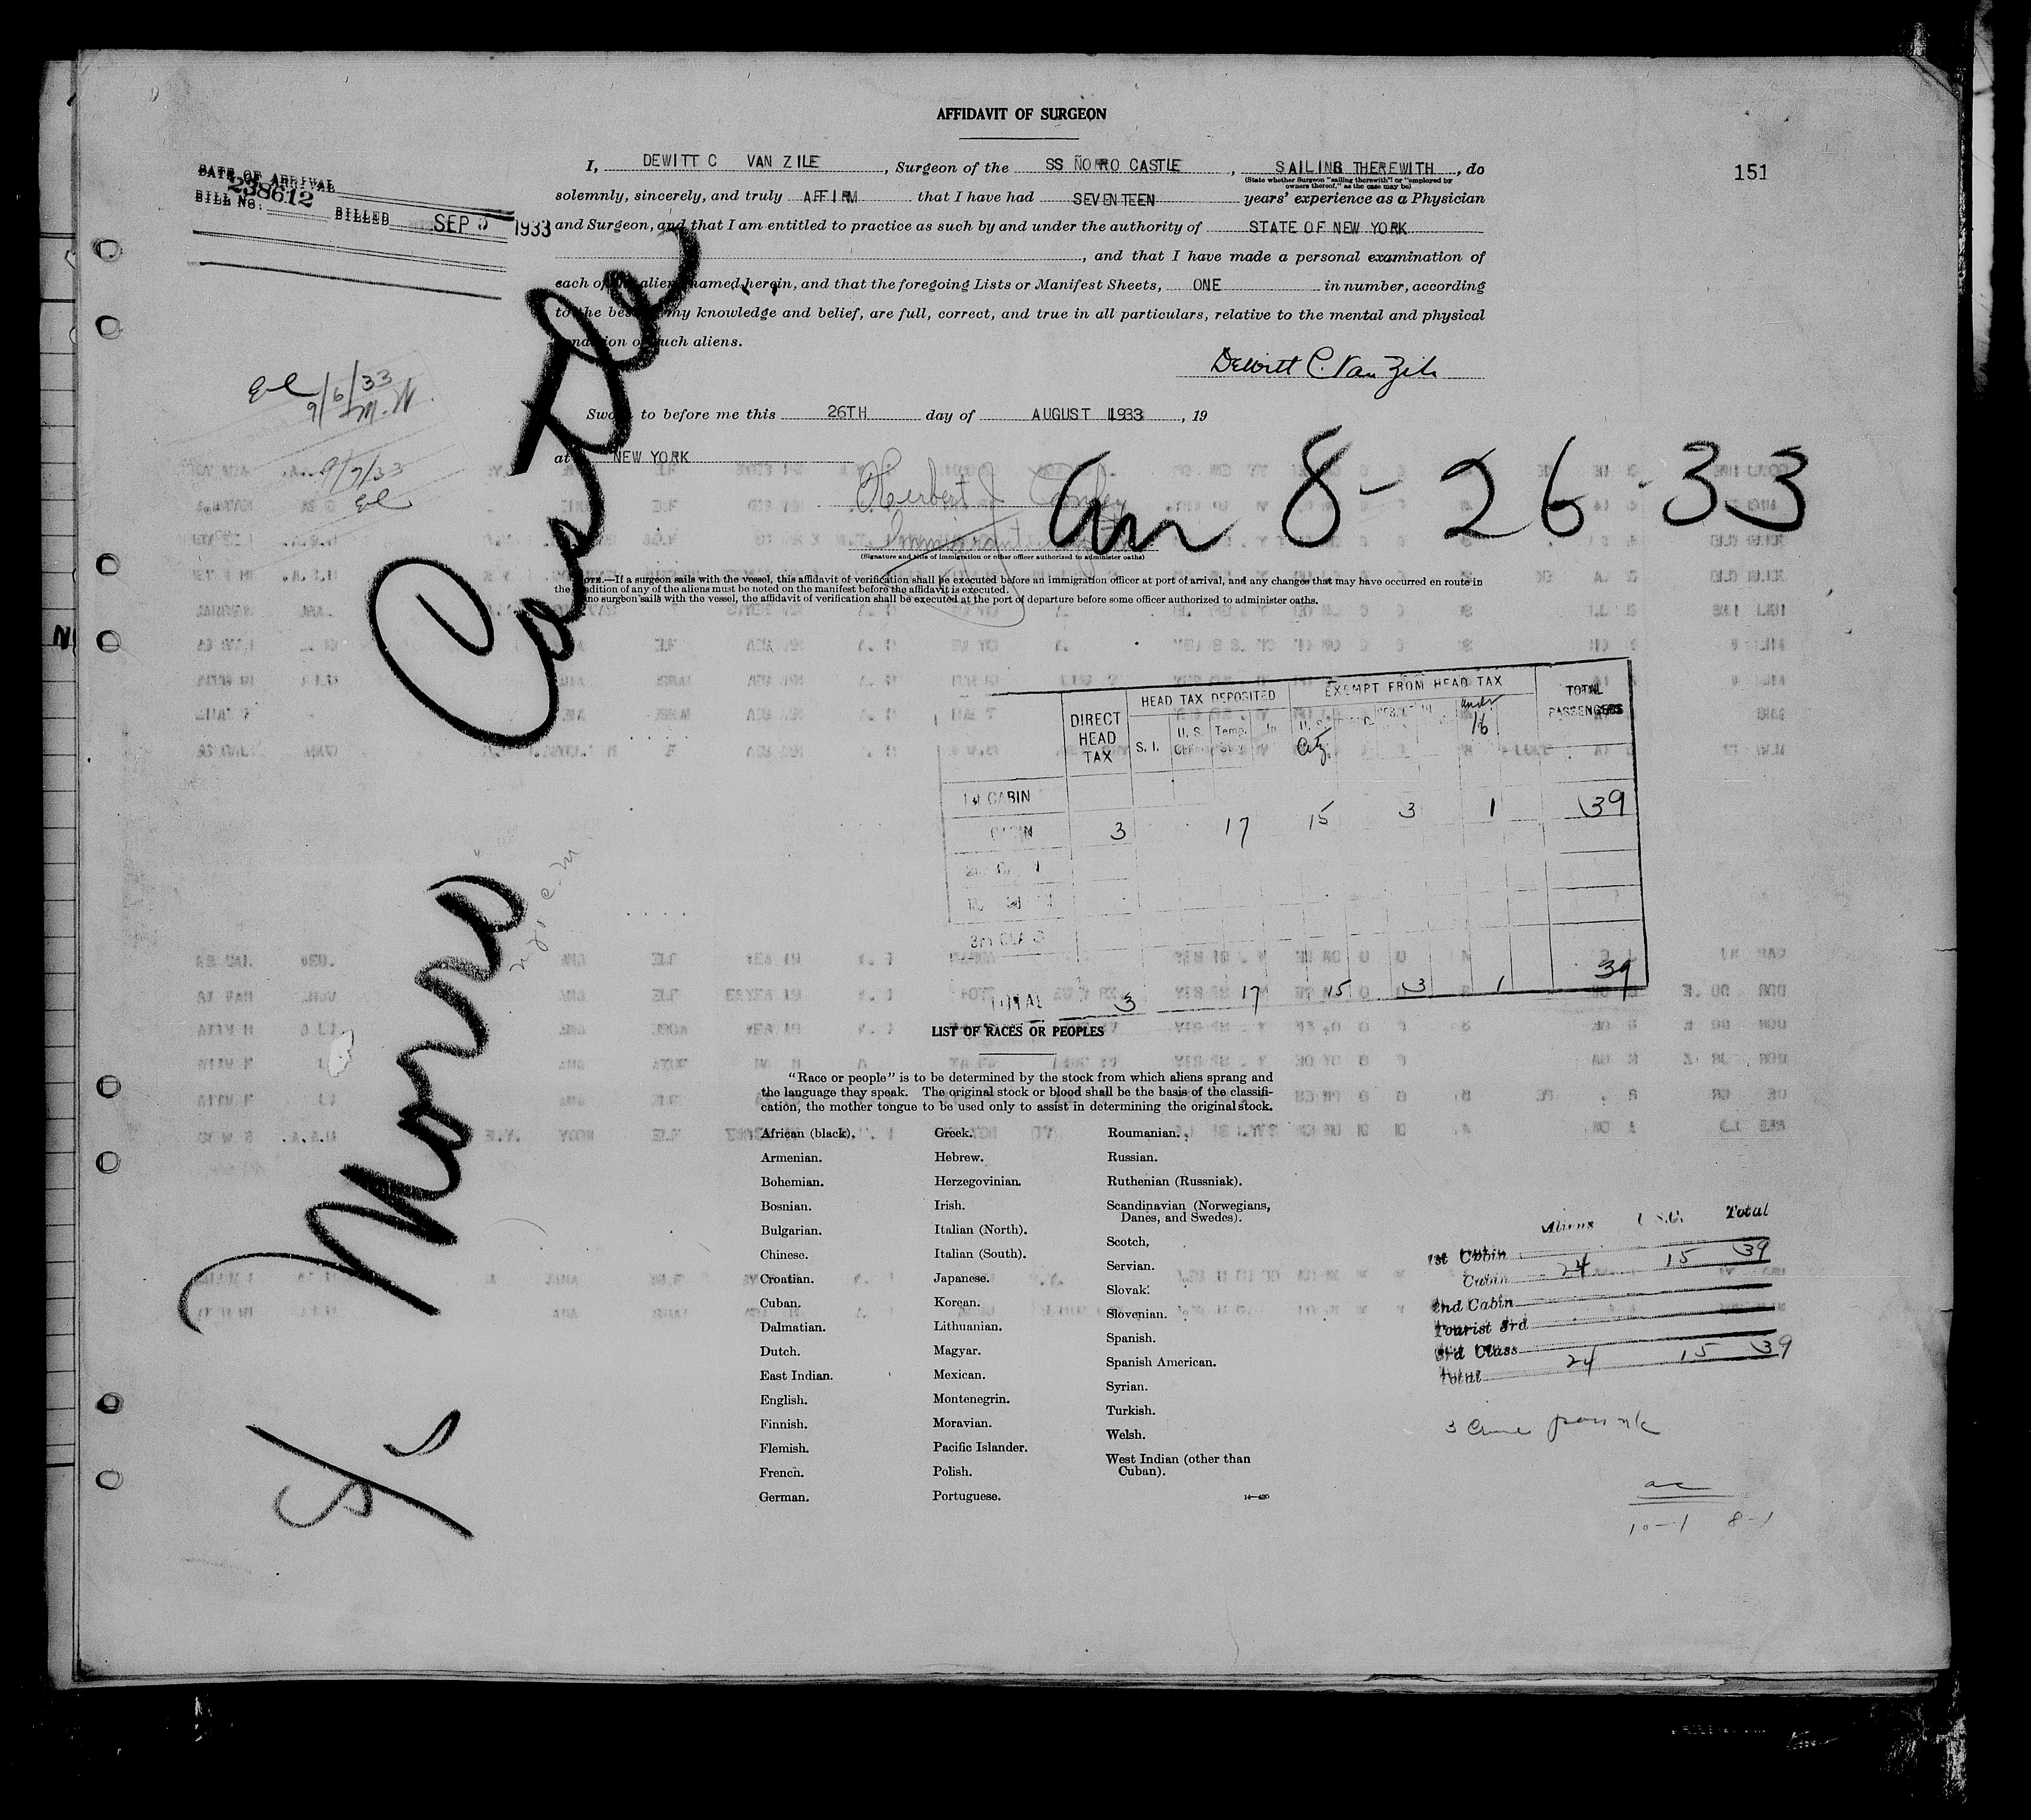 AFFIDAVIT OF SURGEON
151
DATE OF ARRIVAL
238612
BILL No. BILLED SEP 5 1933
I, DEWITT C VAN ZILE, Surgeon of the SS MORRO CASTLE, SAILING THEREWITH, do
(State whether Surgeon "sailing therewith" or "employed by
owners thereof," as the case may be)
solemnly, sincerely, and truly AFFIRM that I have had SEVENTEEN years' experience as a Physician
and Surgeon, and that I am entitled to practice as such by and under the authority of STATE OF NEW YORK
, and that I have made a personal examination of
each of the aliens named herein, and that the foregoing Lists or Manifest Sheets, ONE in number, according
to the best of my knowledge and belief, are full, correct, and true in all particulars, relative to the mental and physical
condition of such aliens.
Dewitt C. Van Zile
9/6/33
M.W.
Sworn to before me this 26TH day of AUGUST 1933, 19
at NEW YORK
9/7/33
Herbert J
Immigrant
(Signature and title of immigration or other officer authorized to administer oaths)
Arr 8-26-33
NOTE.—If a surgeon sails with the vessel, this affidavit of verification shall be executed before an immigration officer at port of arrival, and any changes that may have occurred en route in
the condition of any of the aliens must be noted on the manifest before the affidavit is executed.
If no surgeon sails with the vessel, the affidavit of verification shall be executed at the port of departure before some officer authorized to administer oaths.
S/S Morro Castle
DIRECT HEAD TAX
HEAD TAX DEPOSITED
EXEMPT FROM HEAD TAX
TOTAL PASSENGERS
S. I. U. S. Temp. U. S. Citz. under 16
1st CABIN
CABIN 3 17 15 3 1 39
3rd CLASS
TOTAL 3 17 15 3 1 39
LIST OF RACES OR PEOPLES
"Race or people" is to be determined by the stock from which aliens sprang and
the language they speak. The original stock or blood shall be the basis of the classifi-
cation, the mother tongue to be used only to assist in determining the original stock.
African (black).
Armenian.
Bohemian.
Bosnian.
Bulgarian.
Chinese.
Croatian.
Cuban.
Dalmatian.
Dutch.
East Indian.
English.
Finnish.
Flemish.
French.
German.
Greek.
Hebrew.
Herzegovinian.
Irish.
Italian (North).
Italian (South).
Japanese.
Korean.
Lithuanian.
Magyar.
Mexican.
Montenegrin.
Moravian.
Pacific Islander.
Polish.
Portuguese.
Roumanian.
Russian.
Ruthenian (Russniak).
Scandinavian (Norwegians,
Danes, and Swedes).
Scotch.
Servian.
Slovak.
Slovenian.
Spanish.
Spanish American.
Syrian.
Turkish.
Welsh.
West Indian (other than
Cuban).
Aliens U.S.C. Total
1st Cabin
Cabin 24 15 39
2nd Cabin
Tourist 3rd
3rd Class
Total 24 15 39
10-1 8-1